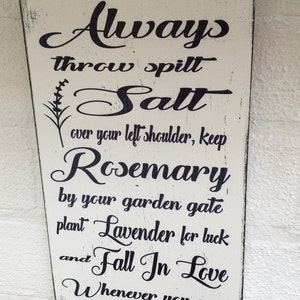 Always
throw spilt
Salt
over your left shoulder, keep
Rosemary
by your garden gate
plant Lavender for luck
and Fall In Love
Whenever you